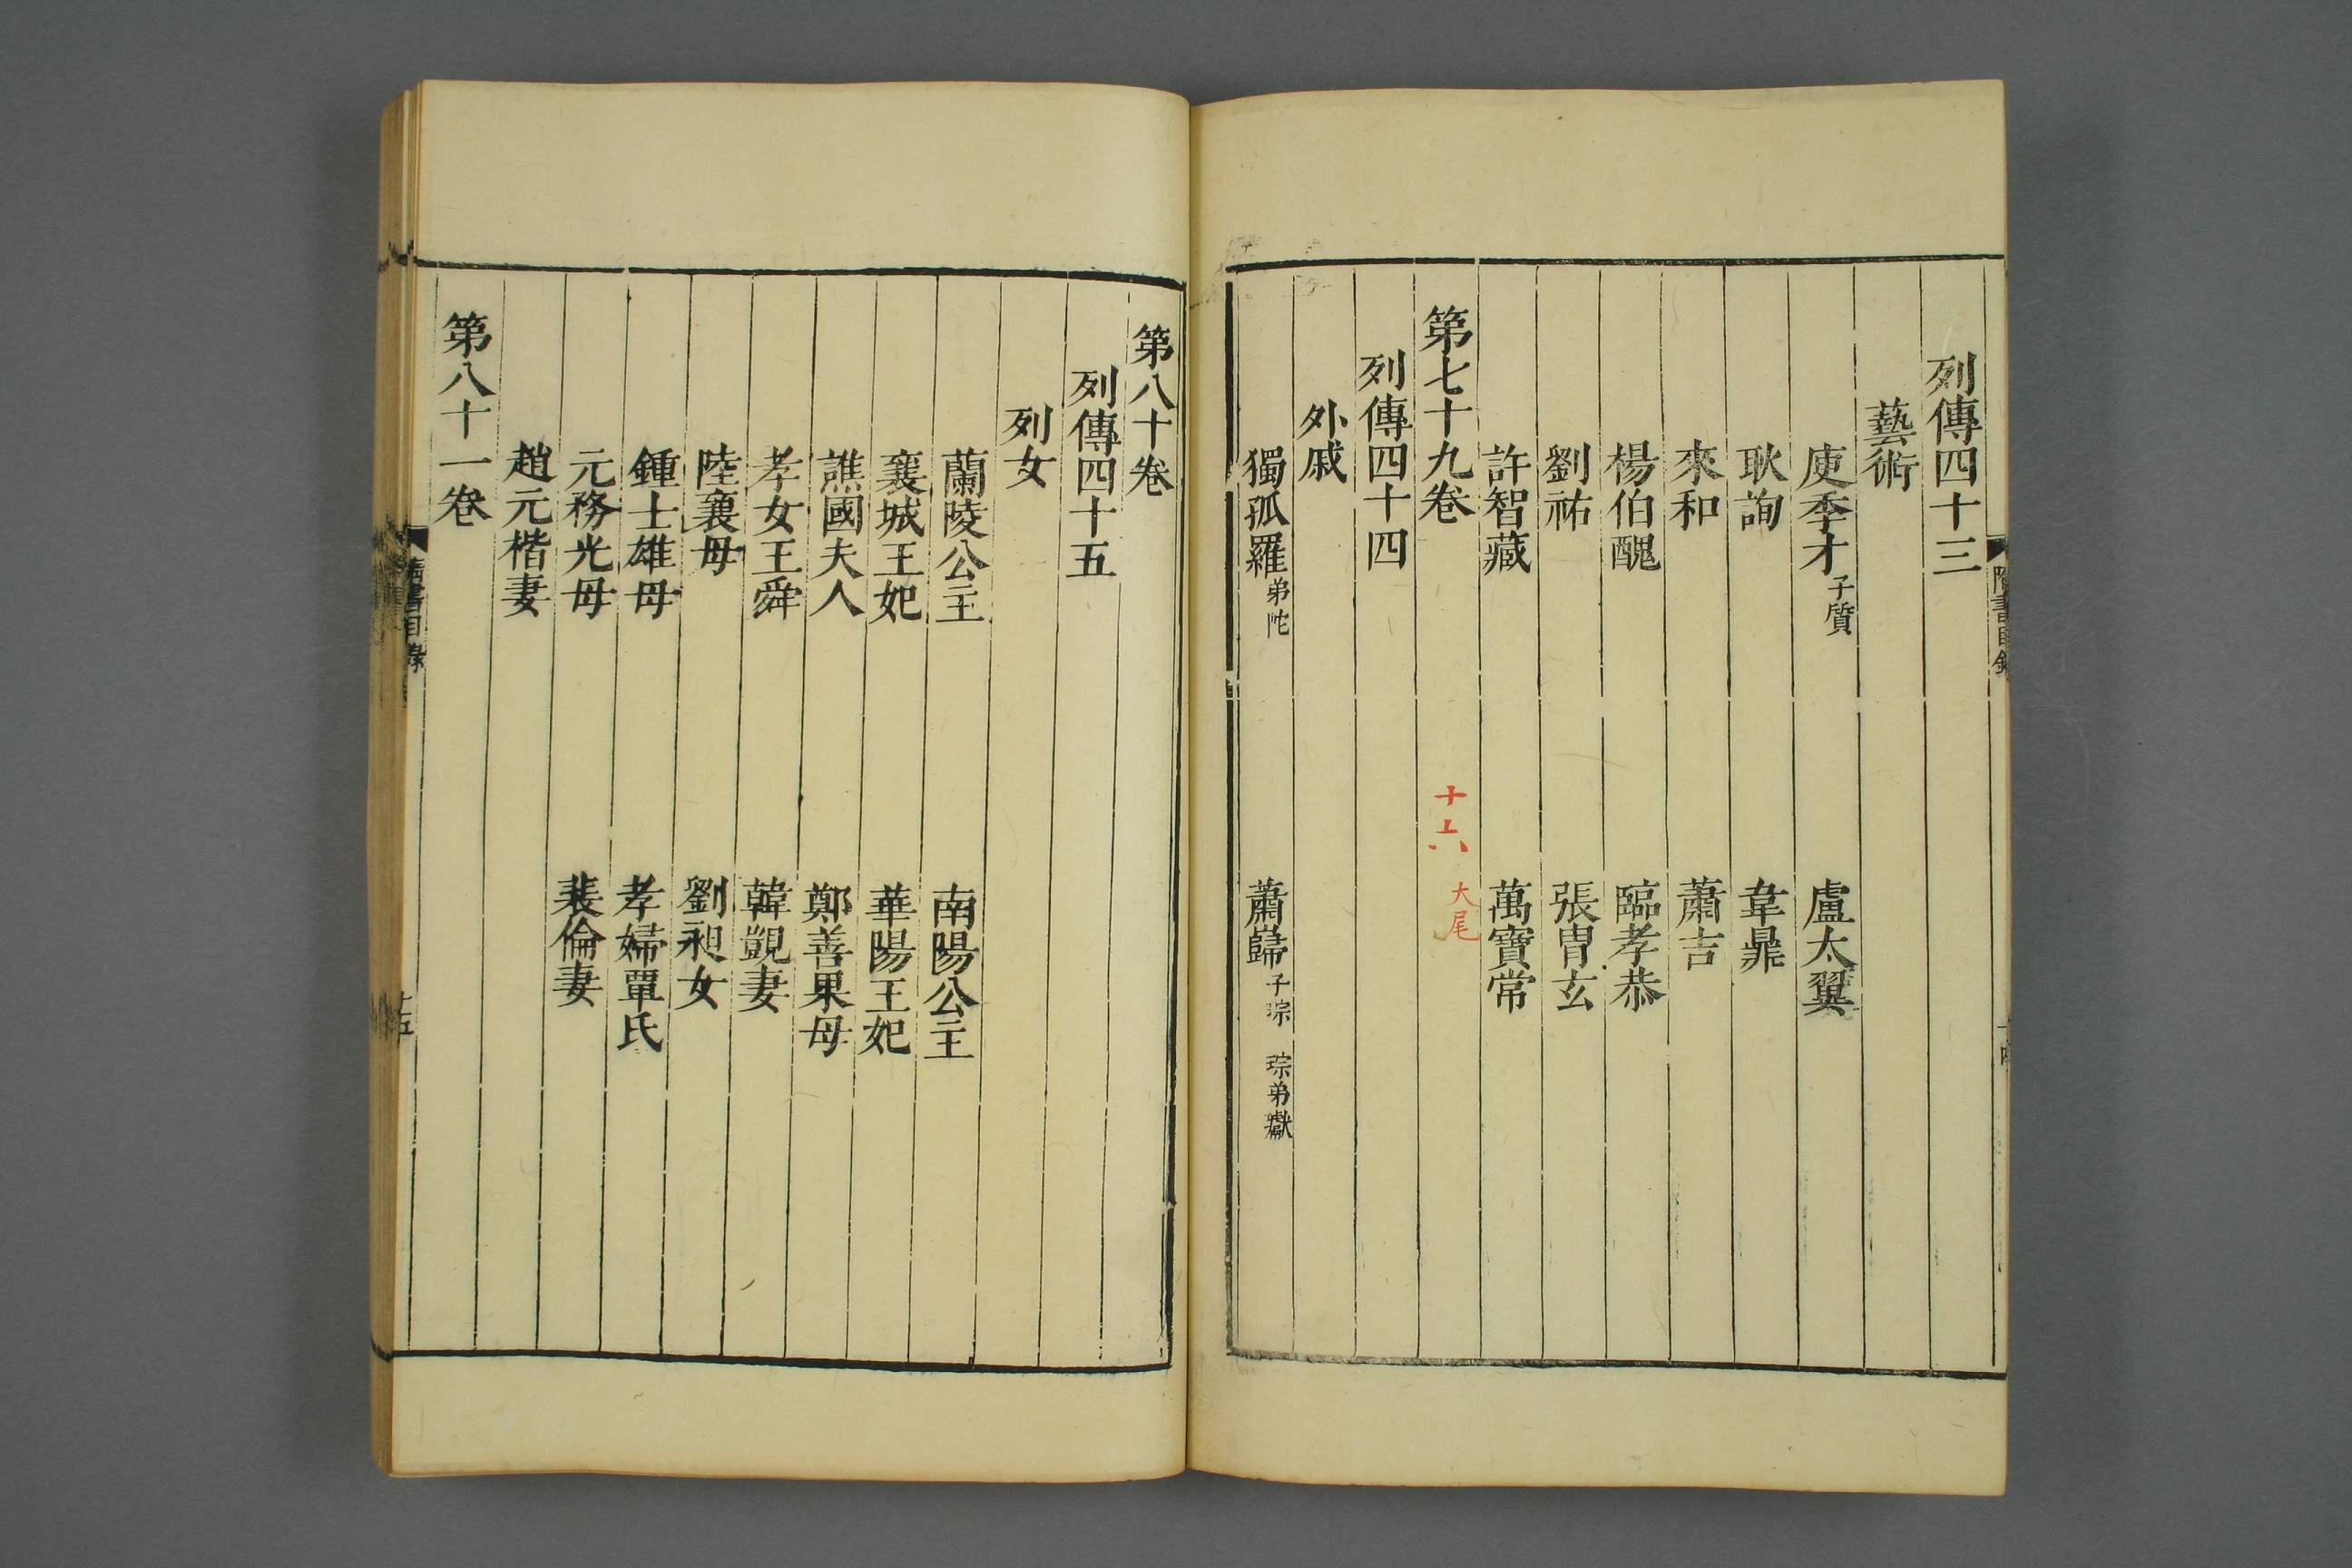 列傳四十三
藝術
庾季才子質 盧太翼
耿詢 韋鼎
來和 蕭吉
楊伯醜 臨孝恭
劉祐 張胄玄
許智藏 萬寶常
第七十九卷 十六 大尾
列傳四十四
外戚
獨孤羅弟陀 蕭巋子琮 琮弟瓛
第八十卷
列傳四十五
列女
蘭陵公主 南陽公主
襄城王妃 華陽王妃
譙國夫人 鄭善果母
孝女王舜 韓覬妻
陸襄母 劉昶女
鍾士雄母 孝婦覃氏
元務光母 裴倫妻
趙元楷妻
第八十一卷
隋書目錄